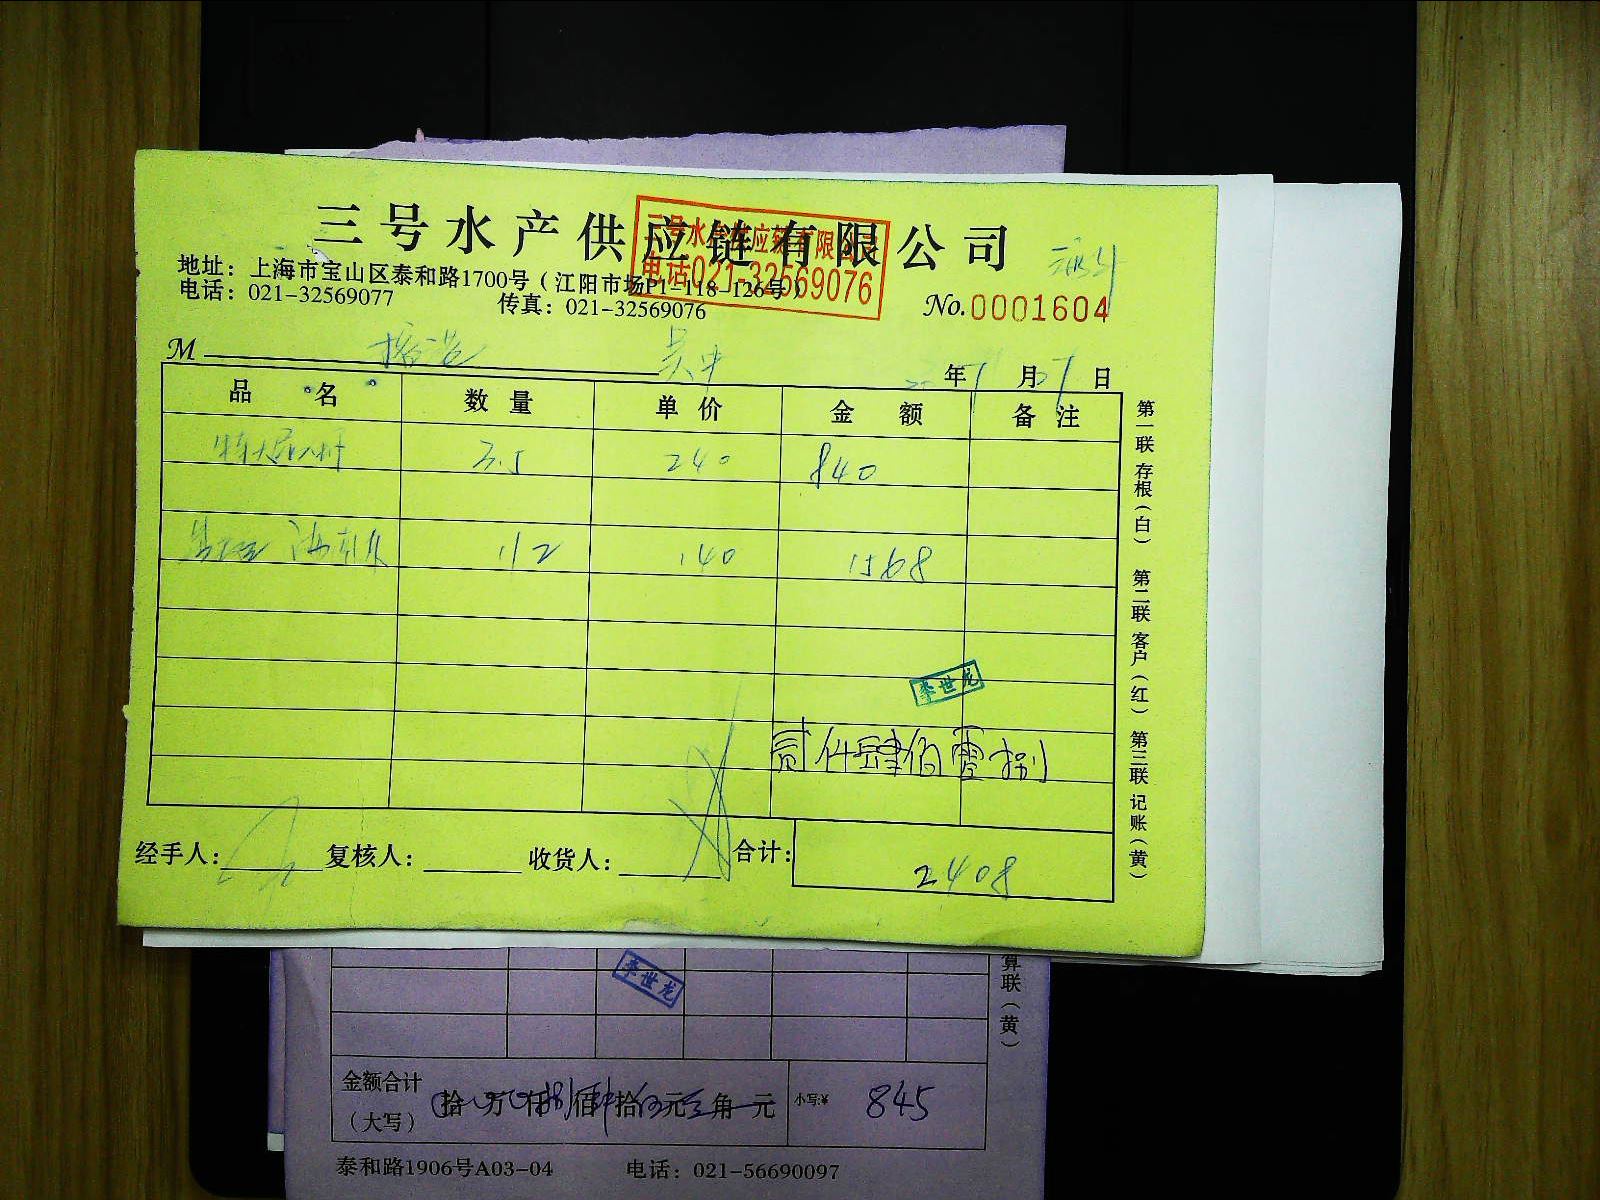 三号水产供应链有限公司
三号水产供应链有限公司
电话021-32569076
地址：上海市宝山区泰和路1700号（江阳市场P1-118-126号）
电话：021-32569077 传真：021-32569076
No.0001604
M 吴中
年 月 日
品名 数量 单价 金额 备注
3.5 240 840
112 140 1568
李世龙
贰仟肆佰零捌
经手人： 复核人： 收货人： 合计： 2408
第一联 存根（白） 第二联 客户（红） 第三联 记账（黄）
李世龙
算联（黄）
金额合计（大写） 拾 万 仟 捌 佰 肆 拾 伍 元 角 元 小写:¥ 845
泰和路1906号A03-04 电话：021-56690097